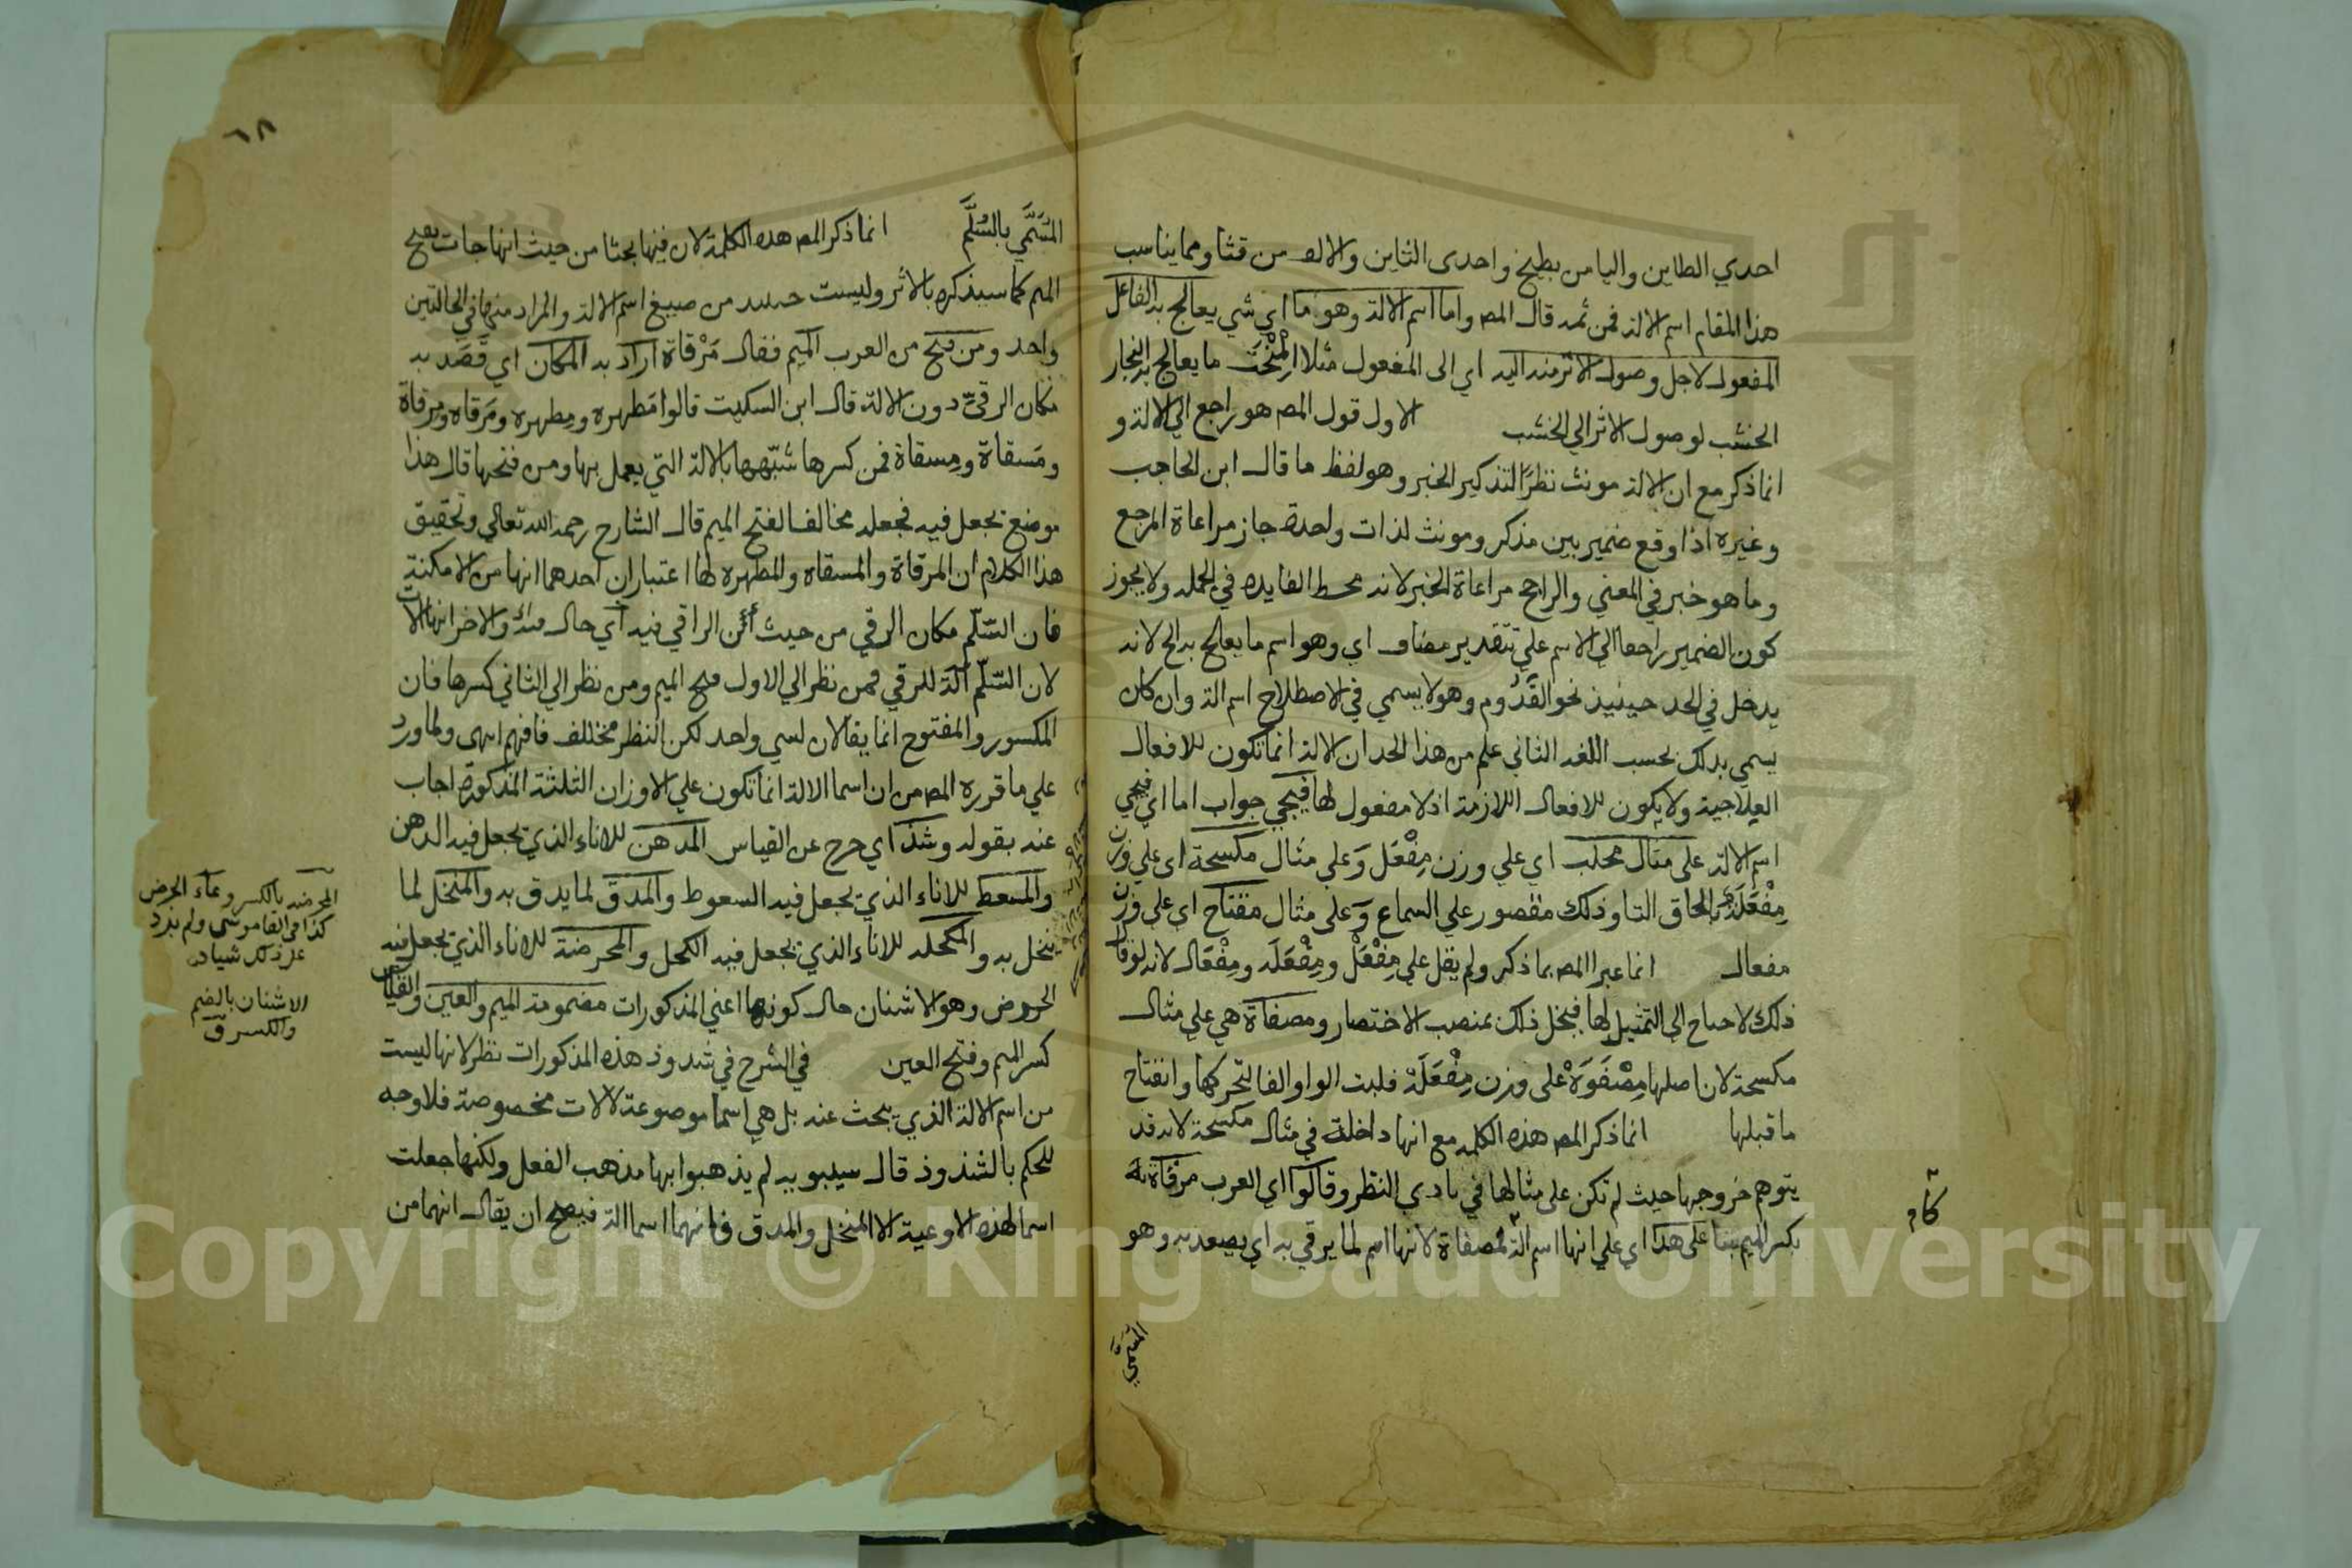 احدي الطاين واليا من بطيخ واحدى الثاين والالف من قثا ومما يناسب
هذا المقام اسم الالة فمن ثمه قال المصـ واما اسم الالة وهو ما اي شي يعالج به الفاعل
المفعول لاجل وصول الاثر منه اليه اي الى المفعول مثلا المِنْحَت ما يعالج به النجار
الخشب لوصول الاثر الي الخشب الاول قول المصـ هو راجع الي الالة و
انما ذكر مع ان الالة مونث نظرًا لتذكير الخبر وهو لفظ ما قال ابن الحاجب
وغيره اذا وقع ضمير بين مذكر ومونث لذات واحدة جاز مراعاة المرجع
وما هو خبر في المعني والراجح مراعاة الخبر لانه محط الفايده في الجملة ولا يجوز
كون الضمير راجعا الي الاسم علي تقدير مضاف اي وهو اسم ما يعالج به الخ لانه
يدخل في الحد حينيذ نحو القَدُوم وهو لا يسمي في الاصطلاح اسم الة وان كان
يسمي بدلك بحسب اللغه الثاني علم من هذا الحد ان الالة انما تكون للافعال
العلاجية ولا يكون للافعال اللازمة اذ لا مفعول لها فيجي جواب اما اي فيجي
اسم الالة على مثال محلب اي علي وزن مِفْعَل وَعلى مثال مكسحة اى علي وزن
مِفْعَلَة بالحاق التا وذلك مقصور علي السماع وَعلى مثال مفتاح اى علي وزن
مفعال انما عبر المصـ بما ذكر ولم يقل علي مِفْعَلْ ومِفْعَلَه ومِفْعَال لانه لو قال
ذلك لاحتاج الى التمثيل لها فيخل ذلك بمنصب الاختصار ومصفاة هي علي مثال
مكسحة لان اصلها مِصْفَوَةْ على وزن مِفْعَلَة قلبت الواو الفا لتحركها وانفتاح
ما قبلها انما ذكر المصـ هذه الكلمه مع انها داخلة في مثال مكسحة لانه قد
يتوهم خروجها حيث لم تكن على مثالها في بادي النظر وقالوا اي العرب مرقاة
بكسر الميم بنا على هذا اي علي انها اسم الة كمصفاة لانها اسم لما يرقي به اي يصعد به وهو
المُسَمَّي
المُسَمَّي بالسُّلَّم انما ذكر المصـ هذه الكلمة لان فيها بحثا من حيث انها جات بفتح
الميم كما سيذكره بالاثر وليست حينيد من صيغ اسم الالة والمراد منها في الحالتين
واحد ومن فتح من العرب الميم فقال مَرْقاة اراد به المكان اي قَصَد به
مكان الرقيّ دون الالة قال ابن السكيت قالوا مَطهره ومِطهره ومَرقاه ومِرقاة
ومَسقاة ومِسقاة فمن كسرها شبّهها بالالة التي يعمل بها ومن فتحها قال هذا
موضع يجعل فيه فجعله مخالفا لفتح الميم قال الشارح رحمه الله تعالي وتحقيق
هذا الكلام ان المرقاة والمسقاه والمطهره لها اعتباران احدهما انها من الامكنة
فان السّلّم مكان الرقي من حيث أنّ الراقي فيه اي حال فيه والاخر انها الات
لان السّلّم الة للرقي فمن نظر الي الاول فتح الميم ومن نظر الي الثاني كسرها فان
المكسور والمفتوح انما يقالان لشي واحد لكن النظر مختلف فافهم انتهى ولما ورد
علي ما قرره المصـ من ان اسما الالة انما تكون علي الاوزان الثلثة المذكورة اجاب
عنه بقوله وشذّ اي خرج عن القياس المدهن للاناء الذي يجعل فيه الدهن
والمسعط للاناء الذي يجعل فيه السعوط والمدق لما يدق به والمنخل لما
ينخل به والمكحله للاناء الذي يجعل فيه الكحل والمحرضة للاناء الذي يجعل فيه
الحروض وهو الاشنان حال كونها اعني المذكورات مضمومة الميم والعين والقياس
كسر الميم وفتح العين في الشرح في شدوذ هذه المذكورات نظر لانها ليست
من اسم الالة الذي يبحث عنه بل هي اسما موضوعة لالات مخصوصة فلا وجه
للحكم بالشذوذ قال سيبويه لم يذهبوا بها مذهب الفعل ولكنها جعلت
اسما لهذه الاوعية الا المنخل والمدق فانهما اسما الة فيصح ان يقال انهما من
المحرضه بالكسر وعاء الحرض
كذا في القاموس ولم يزد
على ذلك شيا
الاشنان بالضم
والكسر ق
٦٨
Copyright © King Saud University